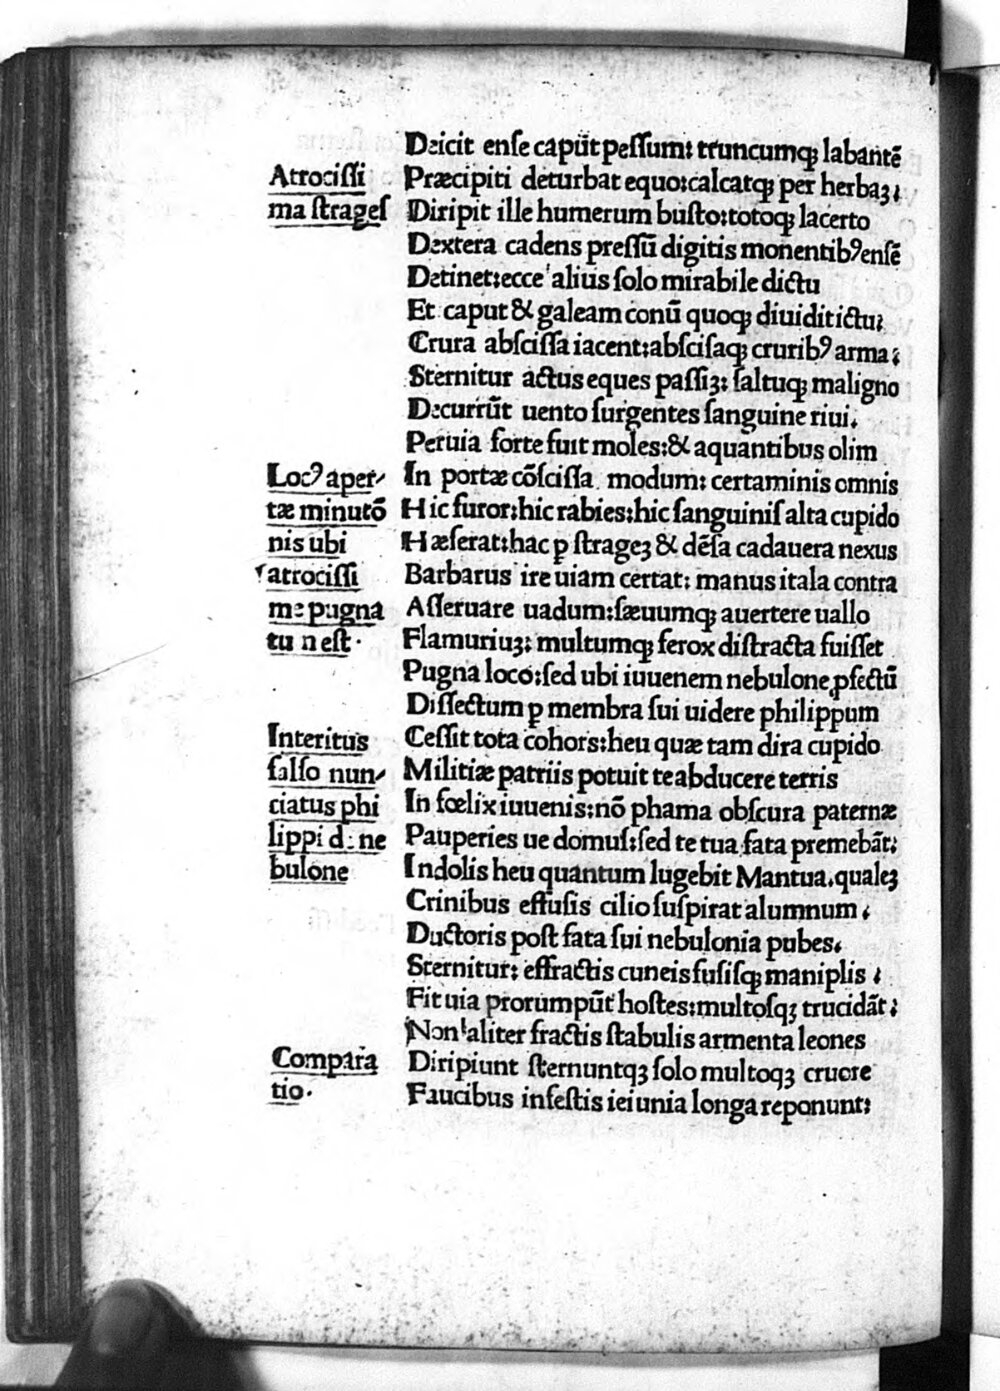 Deicit ense caput pessum: truncumq; labantē
Atrocissi
Præcipiti deturbat equo: calcatq; per herbaꝫ:
ma strages
Diripit ille humerum busto: totoq; lacerto
Dextera cadens pressū digitis monentibꝰ ensē
Detinet: ecce alius solo mirabile dictu
Et caput & galeam conū quoq; diuidit ictu:
Crura abscissa iacent: abscisaq; cruribꝰ arma:
Sternitur actus eques passiꝫ: saltuq; maligno
Decurrūt uento surgentes sanguine riui.
Peruia forte fuit moles: & aquantibus olim
Locꝰ aper-
In portæ cōscissa modum: certaminis omnis
tæ minutō
Hic furor: hic rabies: hic sanguinis alta cupido
nis ubi
Hæserat: hac p strageꝫ & dēsa cadauera nexus
atrocissi
Barbarus ire uiam certat: manus itala contra
me pugna
Asseruare uadum: sæuumq; auertere uallo
tu n est.
Flamuriuꝫ: multumq; ferox distracta fuisset
Pugna loco: sed ubi iuuenem nebulone ꝓfectū
Dissectum p membra sui uidere philippum
Interitus
Cessit tota cohors: heu quæ tam dira cupido
falso nun-
Militiæ patriis potuit te abducere terris
ciatus phi
In fœlix iuuenis: nō phama obscura paternæ
lippi de ne
Pauperies ue domus: sed te tua fata premebāt:
bulone
Indolis heu quantum lugebit Mantua. qualeꝫ
Crinibus effusis cilio suspirat alumnum.
Ductoris post fata sui nebulonia pubes.
Sternitur: effractis cuneis fusisq; maniplis.
Fit uia prorumpūt hostes: multosqꝫ trucidāt:
Non aliter fractis stabulis armenta leones
Compara
Diripiunt sternuntqꝫ solo multoqꝫ cruore
tio.
Faucibus infestis ieiunia longa reponunt: